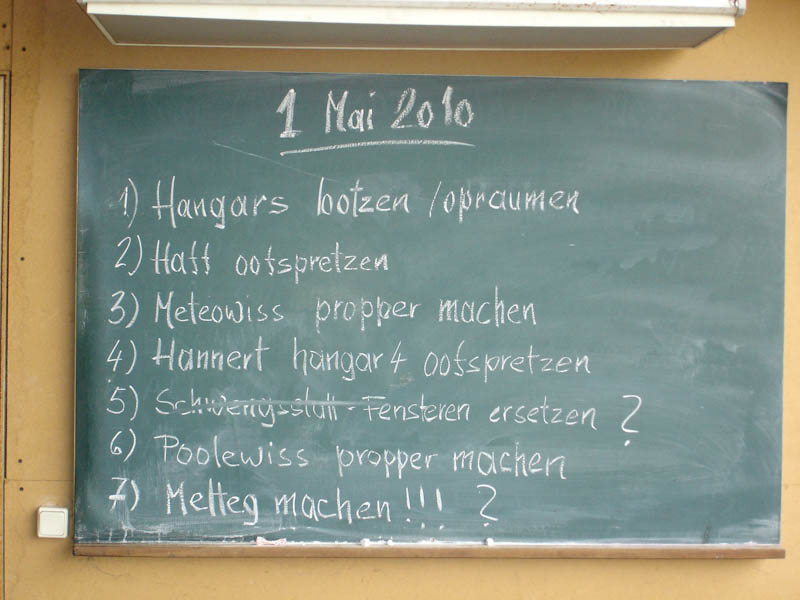 1 Mai 2010
1) Hangars botzen / opraumen
2) Haff ootspretzen
3) Meteowiss propper machen
4) Hannert hangar 4 ootspretzen
5) Schwengsstall - Fensteren ersetzen ?
6) Poolewiss propper machen
7) Metteg machen !!! ?